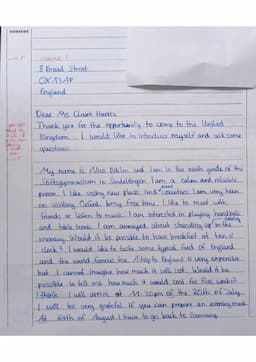 content
round!
8 Broad Street
OX13AP
England
Dear Ms Claire Harris
Thank you for the opportunity to come to the United
Kingdom. I would like to introduce myself and ask some
questions.
My name is Nico and I am in the ninth grade of the
in Sindelfingen. I am a calm and reliable
person. I like seeing new places and countries. I am very keen
on visiting Oxford. In my free time I like to meet with
friends or listen to music. I am interested in playing handball
and table tennis. I am annoyed about standing up in the
morning. Would it be possible to have breakfast at ten o
clock? I would like to take some typical food of England
and the world famous tea. A trip to England is very expensive
but I cannot imagine how much it will cost. Would it be
possible to tell me how much it would cost for five weeks?
I think I will arrive at 11:30pm of the 25th of July.
I will be very grateful if you can prepare an evening meal
At of August I have to go back to Germany.